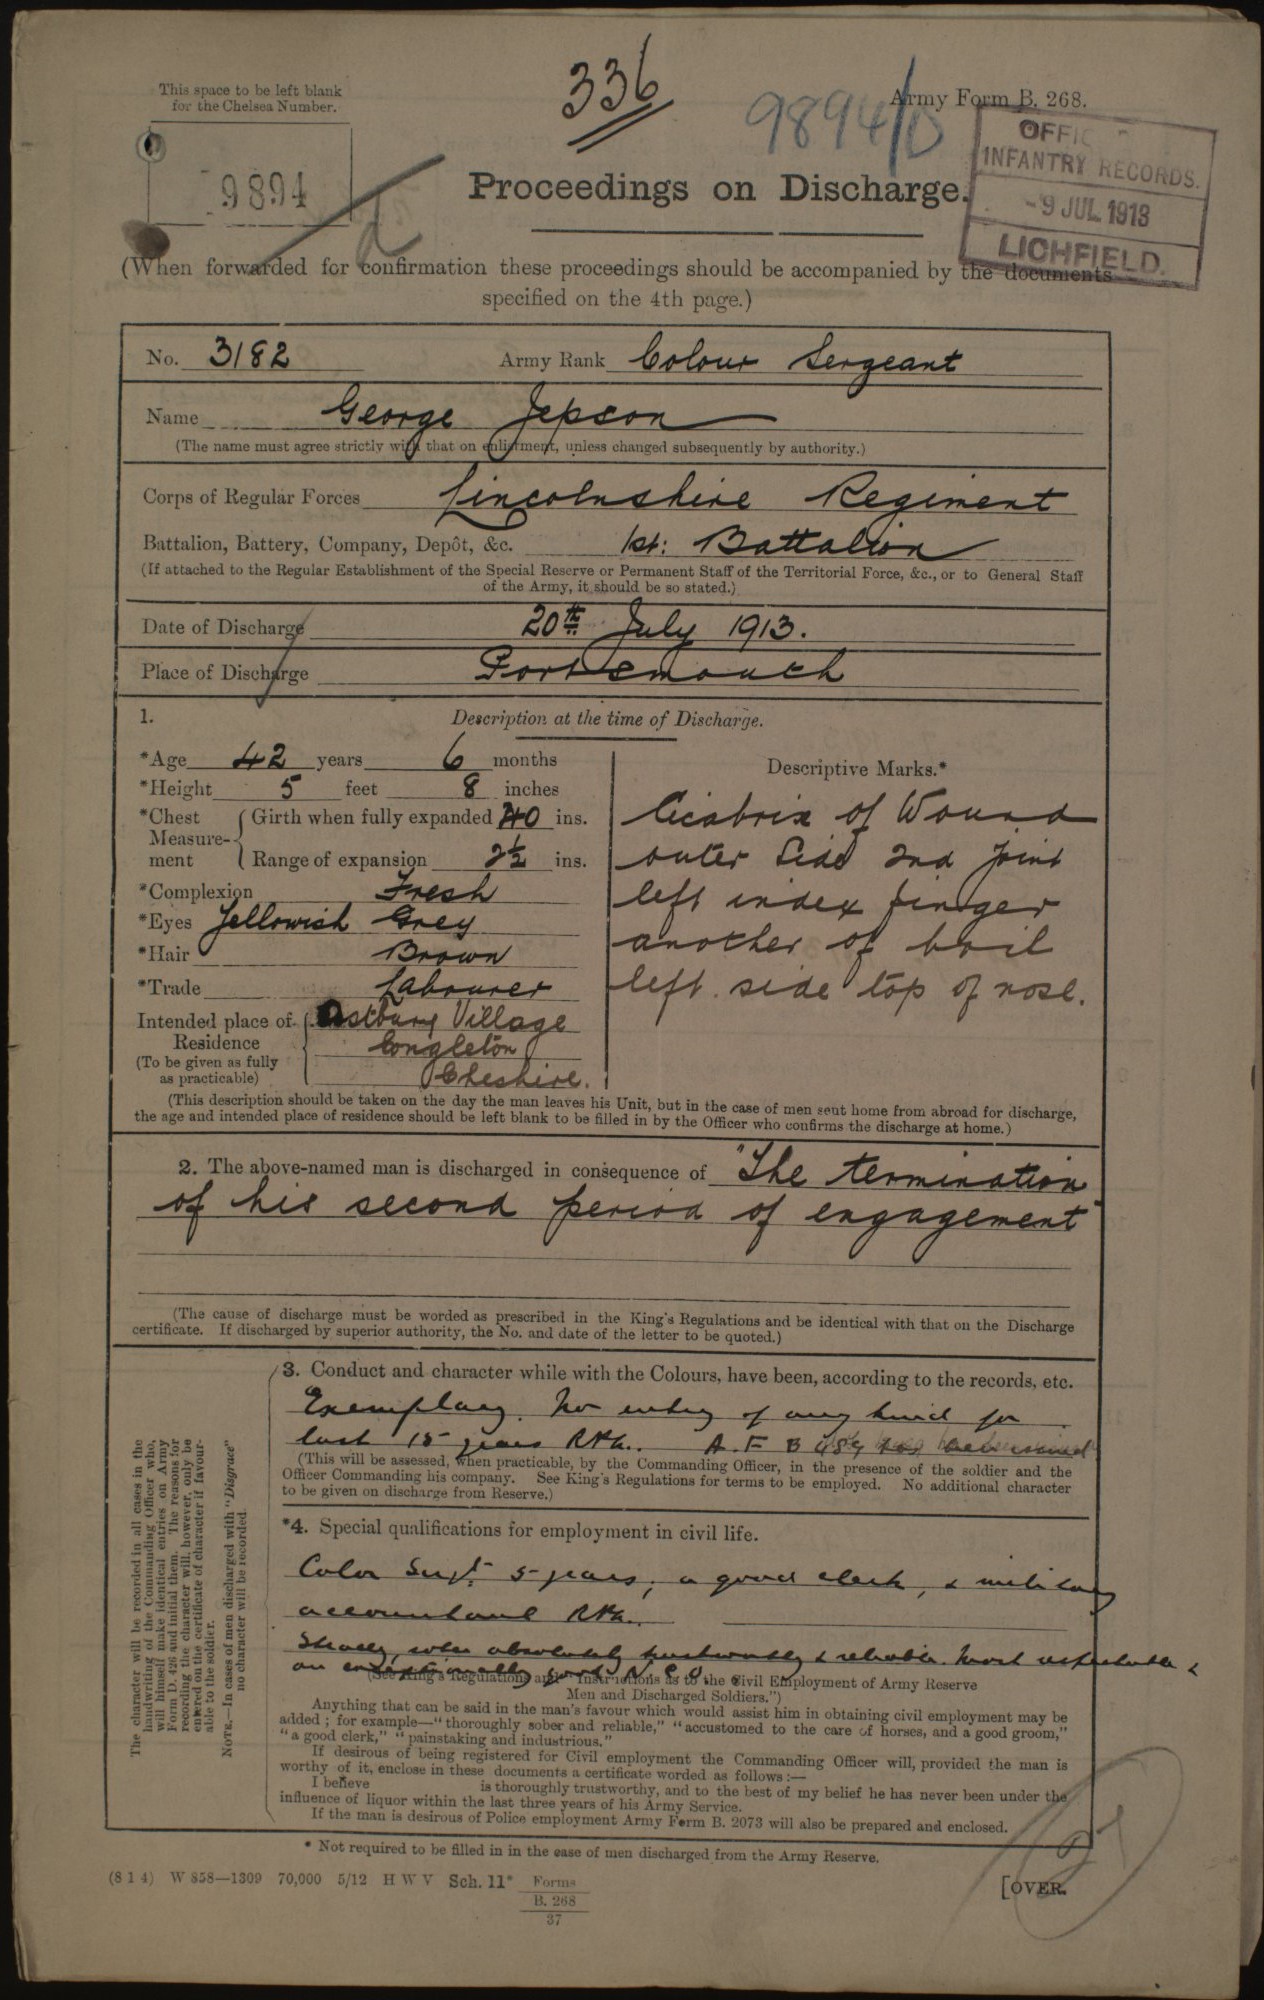 336
This space to be left blank
for the Chelsea Number.
9894/D
Army Form B. 268.
9894
OFFIC
INFANTRY RECORDS.
-9 JUL 1913
LICHFIELD.
Proceedings on Discharge.
(When forwarded for confirmation these proceedings should be accompanied by the documents
specified on the 4th page.)
No. 3182 Army Rank Colour Sergeant
Name George Jepson
(The name must agree strictly with that on enlistment, unless changed subsequently by authority.)
Corps of Regular Forces Lincolnshire Regiment
Battalion, Battery, Company, Depôt, &c. 1st: Battalion
(If attached to the Regular Establishment of the Special Reserve or Permanent Staff of the Territorial Force, &c., or to General Staff
of the Army, it should be so stated.)
Date of Discharge 20th July 1913.
Place of Discharge Portsmouth
1. Description at the time of Discharge.
*Age 42 years 6 months
*Height 5 feet 8 inches
*Chest Measurement { Girth when fully expanded 40 ins.
Range of expansion 2½ ins.
*Complexion Fresh
*Eyes Yellowish Grey
*Hair Brown
*Trade Labourer
Intended place of Residence
(To be given as fully
as practicable)
Astbury Village
Congleton
Cheshire.
Descriptive Marks.*
Cicabrix of Wound
outer Side 2nd Joint
left index finger
another of boil
left side top of nose.
(This description should be taken on the day the man leaves his Unit, but in the case of men sent home from abroad for discharge,
the age and intended place of residence should be left blank to be filled in by the Officer who confirms the discharge at home.)
2. The above-named man is discharged in consequence of "The termination
of his second period of engagement"
(The cause of discharge must be worded as prescribed in the King's Regulations and be identical with that on the Discharge
certificate. If discharged by superior authority, the No. and date of the letter to be quoted.)
The character will be recorded in all cases in the
handwriting of the Commanding Officer who,
will himself make identical entries on Army
Form D. 426 and initial them. The reasons for
recording the character will, however, only be
entered on the certificate of character if favour-
able to the soldier.
NOTE.—In cases of men discharged with "Disgrace"
no character will be recorded.
3. Conduct and character while with the Colours, have been, according to the records, etc.
Exemplary. No entry of any kind for
last 15 years A.F B 489 has been issued
(This will be assessed, when practicable, by the Commanding Officer, in the presence of the soldier and the
Officer Commanding his company. See King's Regulations for terms to be employed. No additional character
to be given on discharge from Reserve.)
*4. Special qualifications for employment in civil life.
Color Sergt. 5 years; a good clerk, & military
accountant
Steady, sober absolutely trustworthy & reliable. Most respectable &
an exceptionally good N.C.O.
(See King's Regulations and "Instructions as to the Civil Employment of Army Reserve
Men and Discharged Soldiers.")
Anything that can be said in the man's favour which would assist him in obtaining civil employment may be
added; for example—"thoroughly sober and reliable," "accustomed to the care of horses, and a good groom,"
"a good clerk," "painstaking and industrious."
If desirous of being registered for Civil employment the Commanding Officer will, provided the man is
worthy of it, enclose in these documents a certificate worded as follows:—
I believe is thoroughly trustworthy, and to the best of my belief he has never been under the
influence of liquor within the last three years of his Army Service.
If the man is desirous of Police employment Army Form B. 2073 will also be prepared and enclosed.
* Not required to be filled in in the case of men discharged from the Army Reserve.
(8 1 4) W 858—1309 70,000 5/12 H W V Sch. 11* Forms
B. 268
37
[OVER.